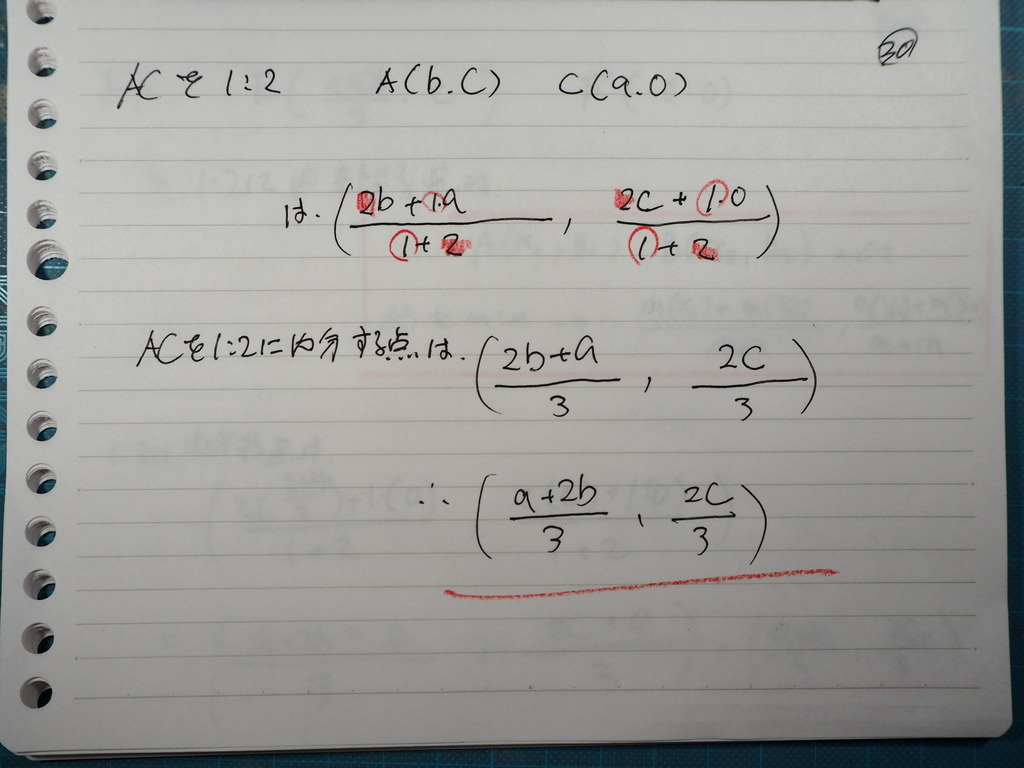 30
ACを1:2 A(b.C) C(a.0)
は. (2b+1.a/1+2, 2c+1.0/1+2)
ACを1:2に内分する点は. (2b+a/3, 2c/3)
∴ (a+2b/3, 2c/3)